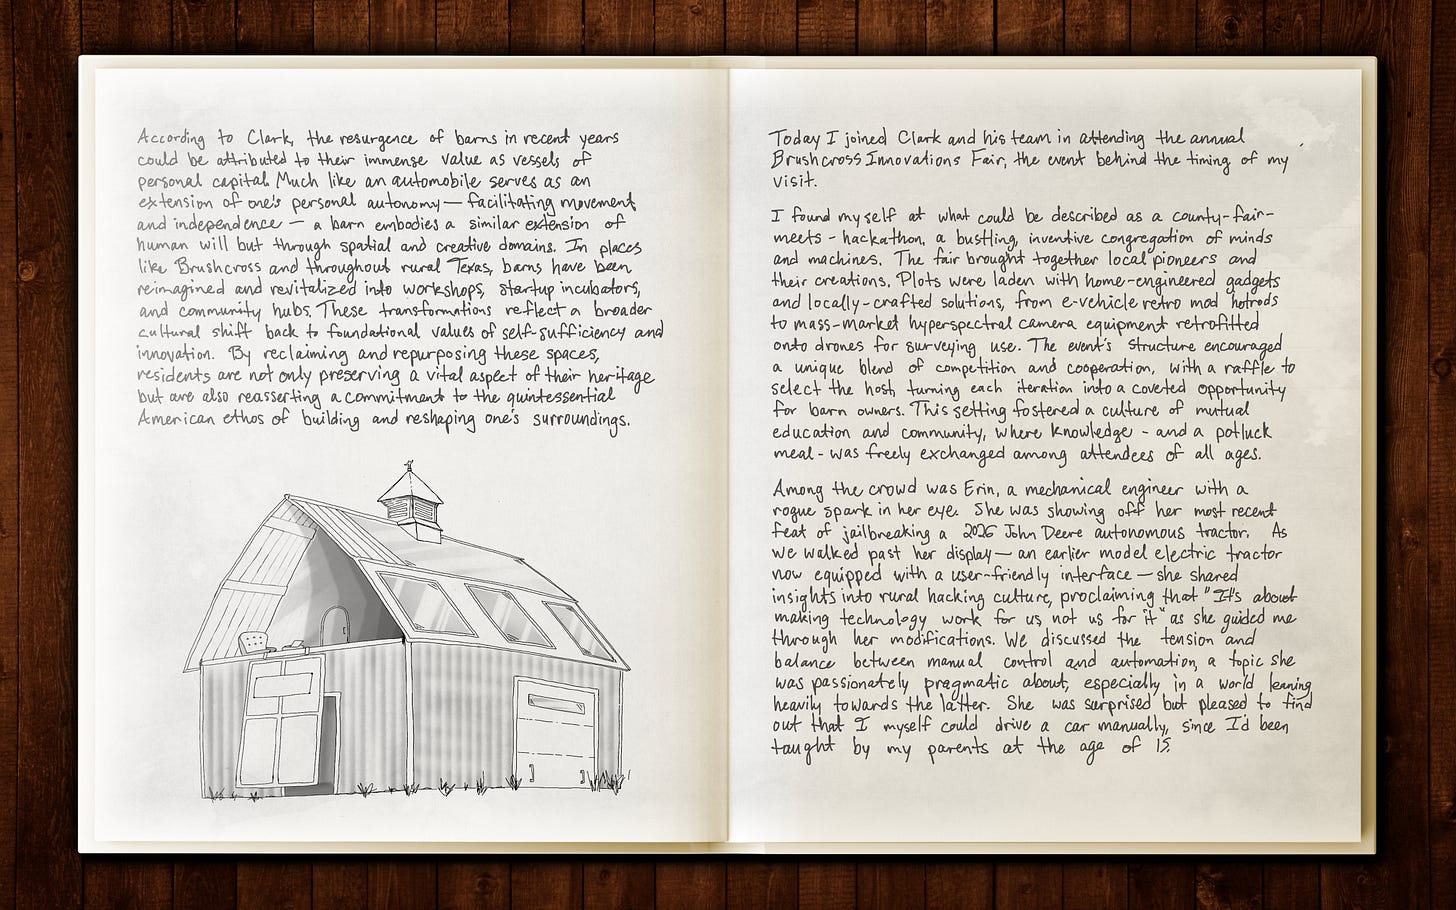 According to Clark, the resurgence of barns in recent years
could be attributed to their immense value as vessels of
personal capital. Much like an automobile serves as an
extension of one's personal autonomy — facilitating movement
and independence — a barn embodies a similar extension of
human will but through spatial and creative domains. In places
like Brushcross and throughout rural Texas, barns have been
reimagined and revitalized into workshops, startup incubators,
and community hubs. These transformations reflect a broader
cultural shift back to foundational values of self-sufficiency and
innovation. By reclaiming and repurposing these spaces,
residents are not only preserving a vital aspect of their heritage
but are also reasserting a commitment to the quintessential
American ethos of building and reshaping one's surroundings.
Today I joined Clark and his team in attending the annual
Brushcross Innovations Fair, the event behind the timing of my
visit.
I found myself at what could be described as a county-fair-
meets-hackathon, a bustling, inventive congregation of minds
and machines. The fair brought together local pioneers and
their creations. Plots were laden with home-engineered gadgets
and locally-crafted solutions, from e-vehicle retro mod hotrods
to mass-market hyperspectral camera equipment retrofitted
onto drones for surveying use. The event's structure encouraged
a unique blend of competition and cooperation, with a raffle to
select the host, turning each iteration into a coveted opportunity
for barn owners. This setting fostered a culture of mutual
education and community, where knowledge - and a potluck
meal - was freely exchanged among attendees of all ages.
Among the crowd was Erin, a mechanical engineer with a
rogue spark in her eye. She was showing off her most recent
feat of jailbreaking a 2026 John Deere autonomous tractor. As
we walked past her display — an earlier model electric tractor
now equipped with a user-friendly interface — she shared
insights into rural hacking culture, proclaiming that "It's about
making technology work for us, not us for it" as she guided me
through her modifications. We discussed the tension and
balance between manual control and automation, a topic she
was passionately pragmatic about, especially in a world leaning
heavily towards the latter. She was surprised but pleased to find
out that I myself could drive a car manually, since I'd been
taught by my parents at the age of 15.